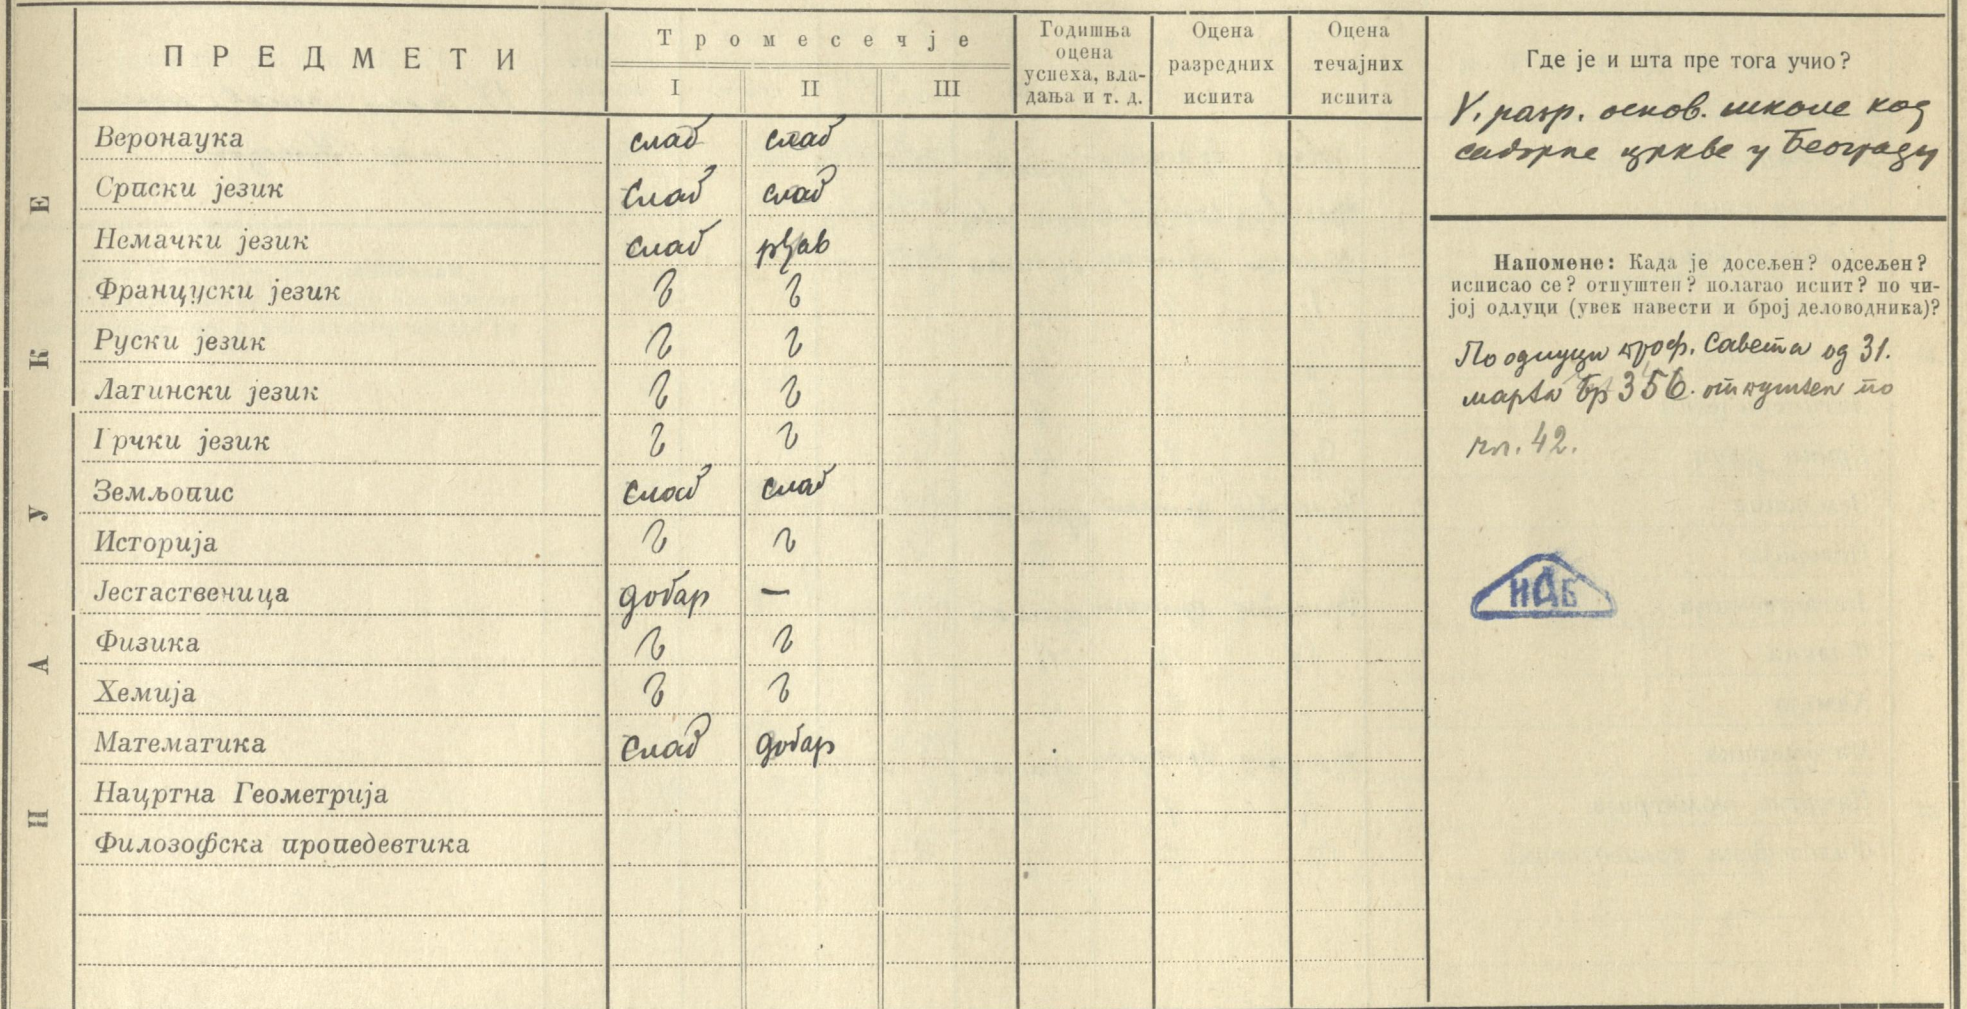 НАУКЕ
ПРЕДМЕТИ
Тромесечје
I II III
Годишња оцена успеха, вла- дања и т. д.
Оцена разредних испита
Оцена течајних испита
Веронаука слаб слаб
Српски језик слаб слаб
Немачки језик слаб рђав
Француски језик
Руски језик
Латински језик
Грчки језик
Земљопис слаб слаб
Историја
Јестаственица добар —
Физика
Хемија
Математика слаб добар
Нацртна Геометрија
Филозофска пропедевтика
Где је и шта пре тога учио?
разр. основ. школе код
саборне цркве у Београду
Напомене: Када је досељен? одсељен?
исписао се? отпуштен? полагао испит? по чи-
јој одлуци (увек навести и број деловодника)?
По одлуци проф. Савета од 31.
марта бр 356. отпуштен по
чл. 42.